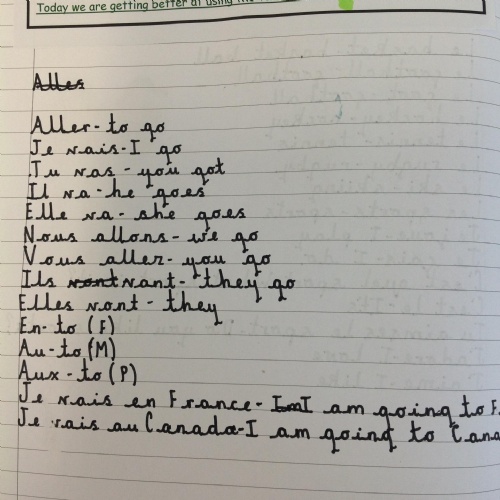 Today we are getting better at using the
Alles
Aller- to go
Je vais-I go
Tu vas - you got
Il va - he goes
Elle va - she goes
Nous allons- we go
Vous aller- you go
Ils vont vant- they go
Elles vont - they
En-to (F)
Au-to (M)
Aux-to (P)
Je vais en France- Im I am going to F
Je vais au Canada-I am going to Cana